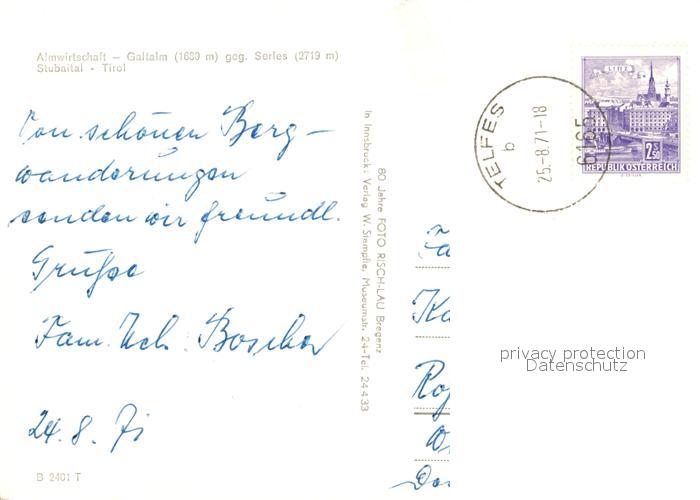 Almwirtschaft – Galtalm (1680 m) geg. Serles (2719 m)
Stubaital - Tirol
Von schönen Berg-
wanderungen
senden wir freundl.
Grüße
Fam.
24.8.71
B 2401 T
80 Jahre FOTO RISCH-LAU Bregenz
In Innsbruck: Verlag W. Stempfle, Museumstr. 24-Tel. 24433
TELFES
b
25.-8.71-18
6165
LINZ
2.50
REPUBLIK ÖSTERREICH
privacy protection
Datenschutz